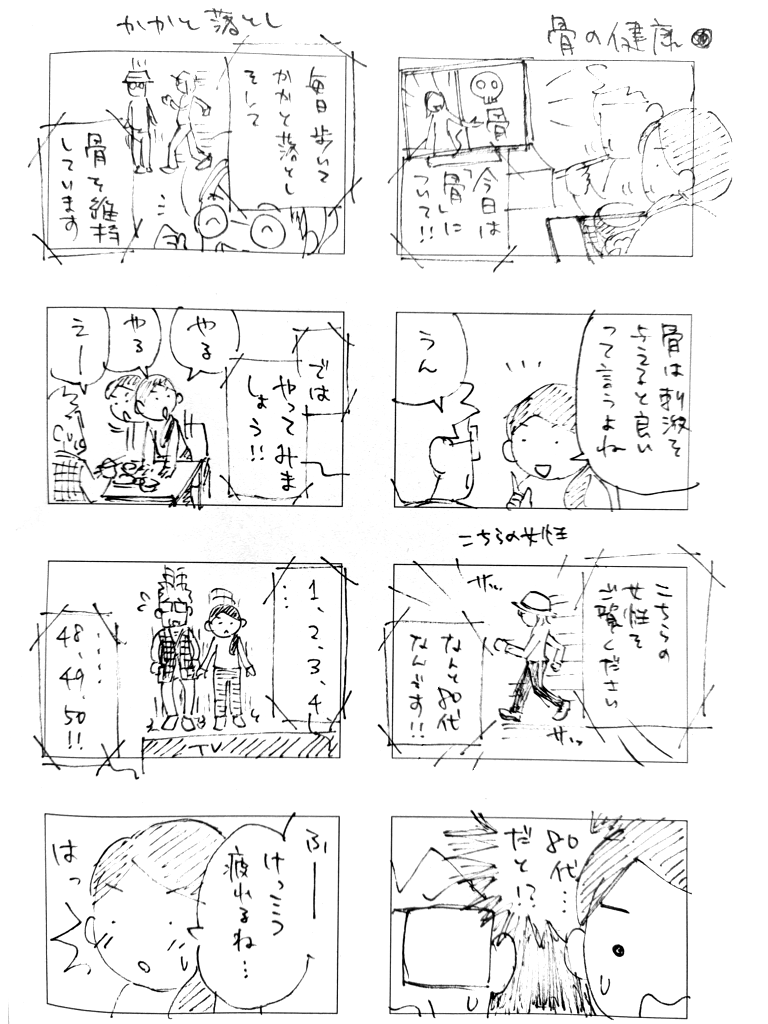 骨の健康
骨
今日は
「骨」に
ついて!!
骨は刺激を
与えると良い
って言うよね
うん
こちらの女性
こちらの
女性を
ご覧ください
サッ
なんと80代
なんです!!
サッ
80代…
だと!?
かかと落とし
毎日歩いて
かかと落とし
そして
骨を維持
しています
では
やってみま
しょう!!
やる
やる
えー
1、2、3、4、
…
……
48、49
50!!
TV
ふーー
けっこう
疲れるね…
はっ